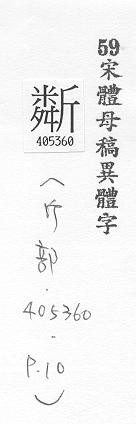 59宋體母稿異體字
斴
405360
（斤部．405360．P.10）